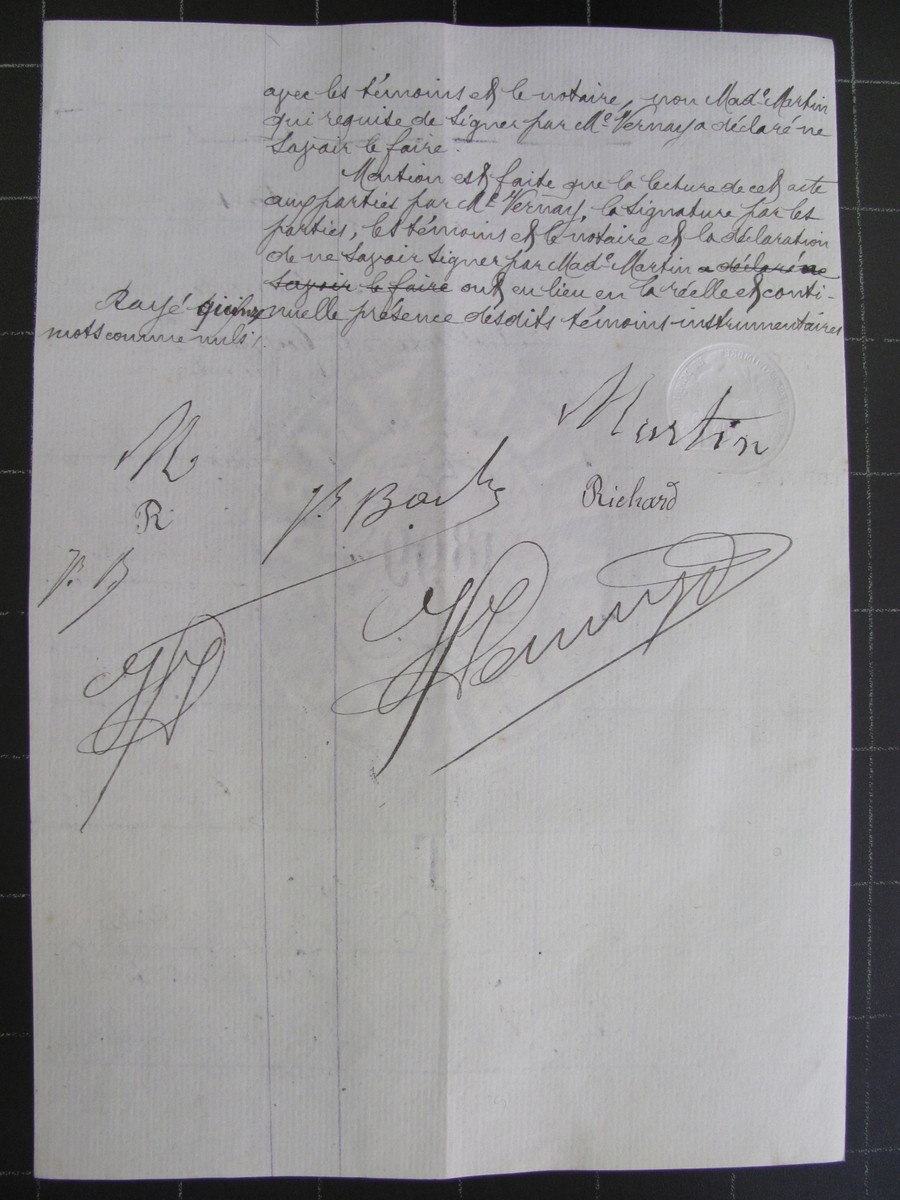 avec les témoins et le notaire, non Made Martin
qui requise de signer par Me Vernay a déclaré ne
savoir le faire.
Mention est faite que la lecture de cet acte
aux parties par Me Vernay, la signature par les
parties, les témoins et le notaire et la déclaration
de ne savoir signer par Made Martin a déclaré ne
savoir le faire ont eu lieu en la réelle et conti-
nuelle présence desdits témoins instrumentaires
Rayé
mots comme nuls.
Martin
M
Richard
R
JB
JB
Vernay
1899